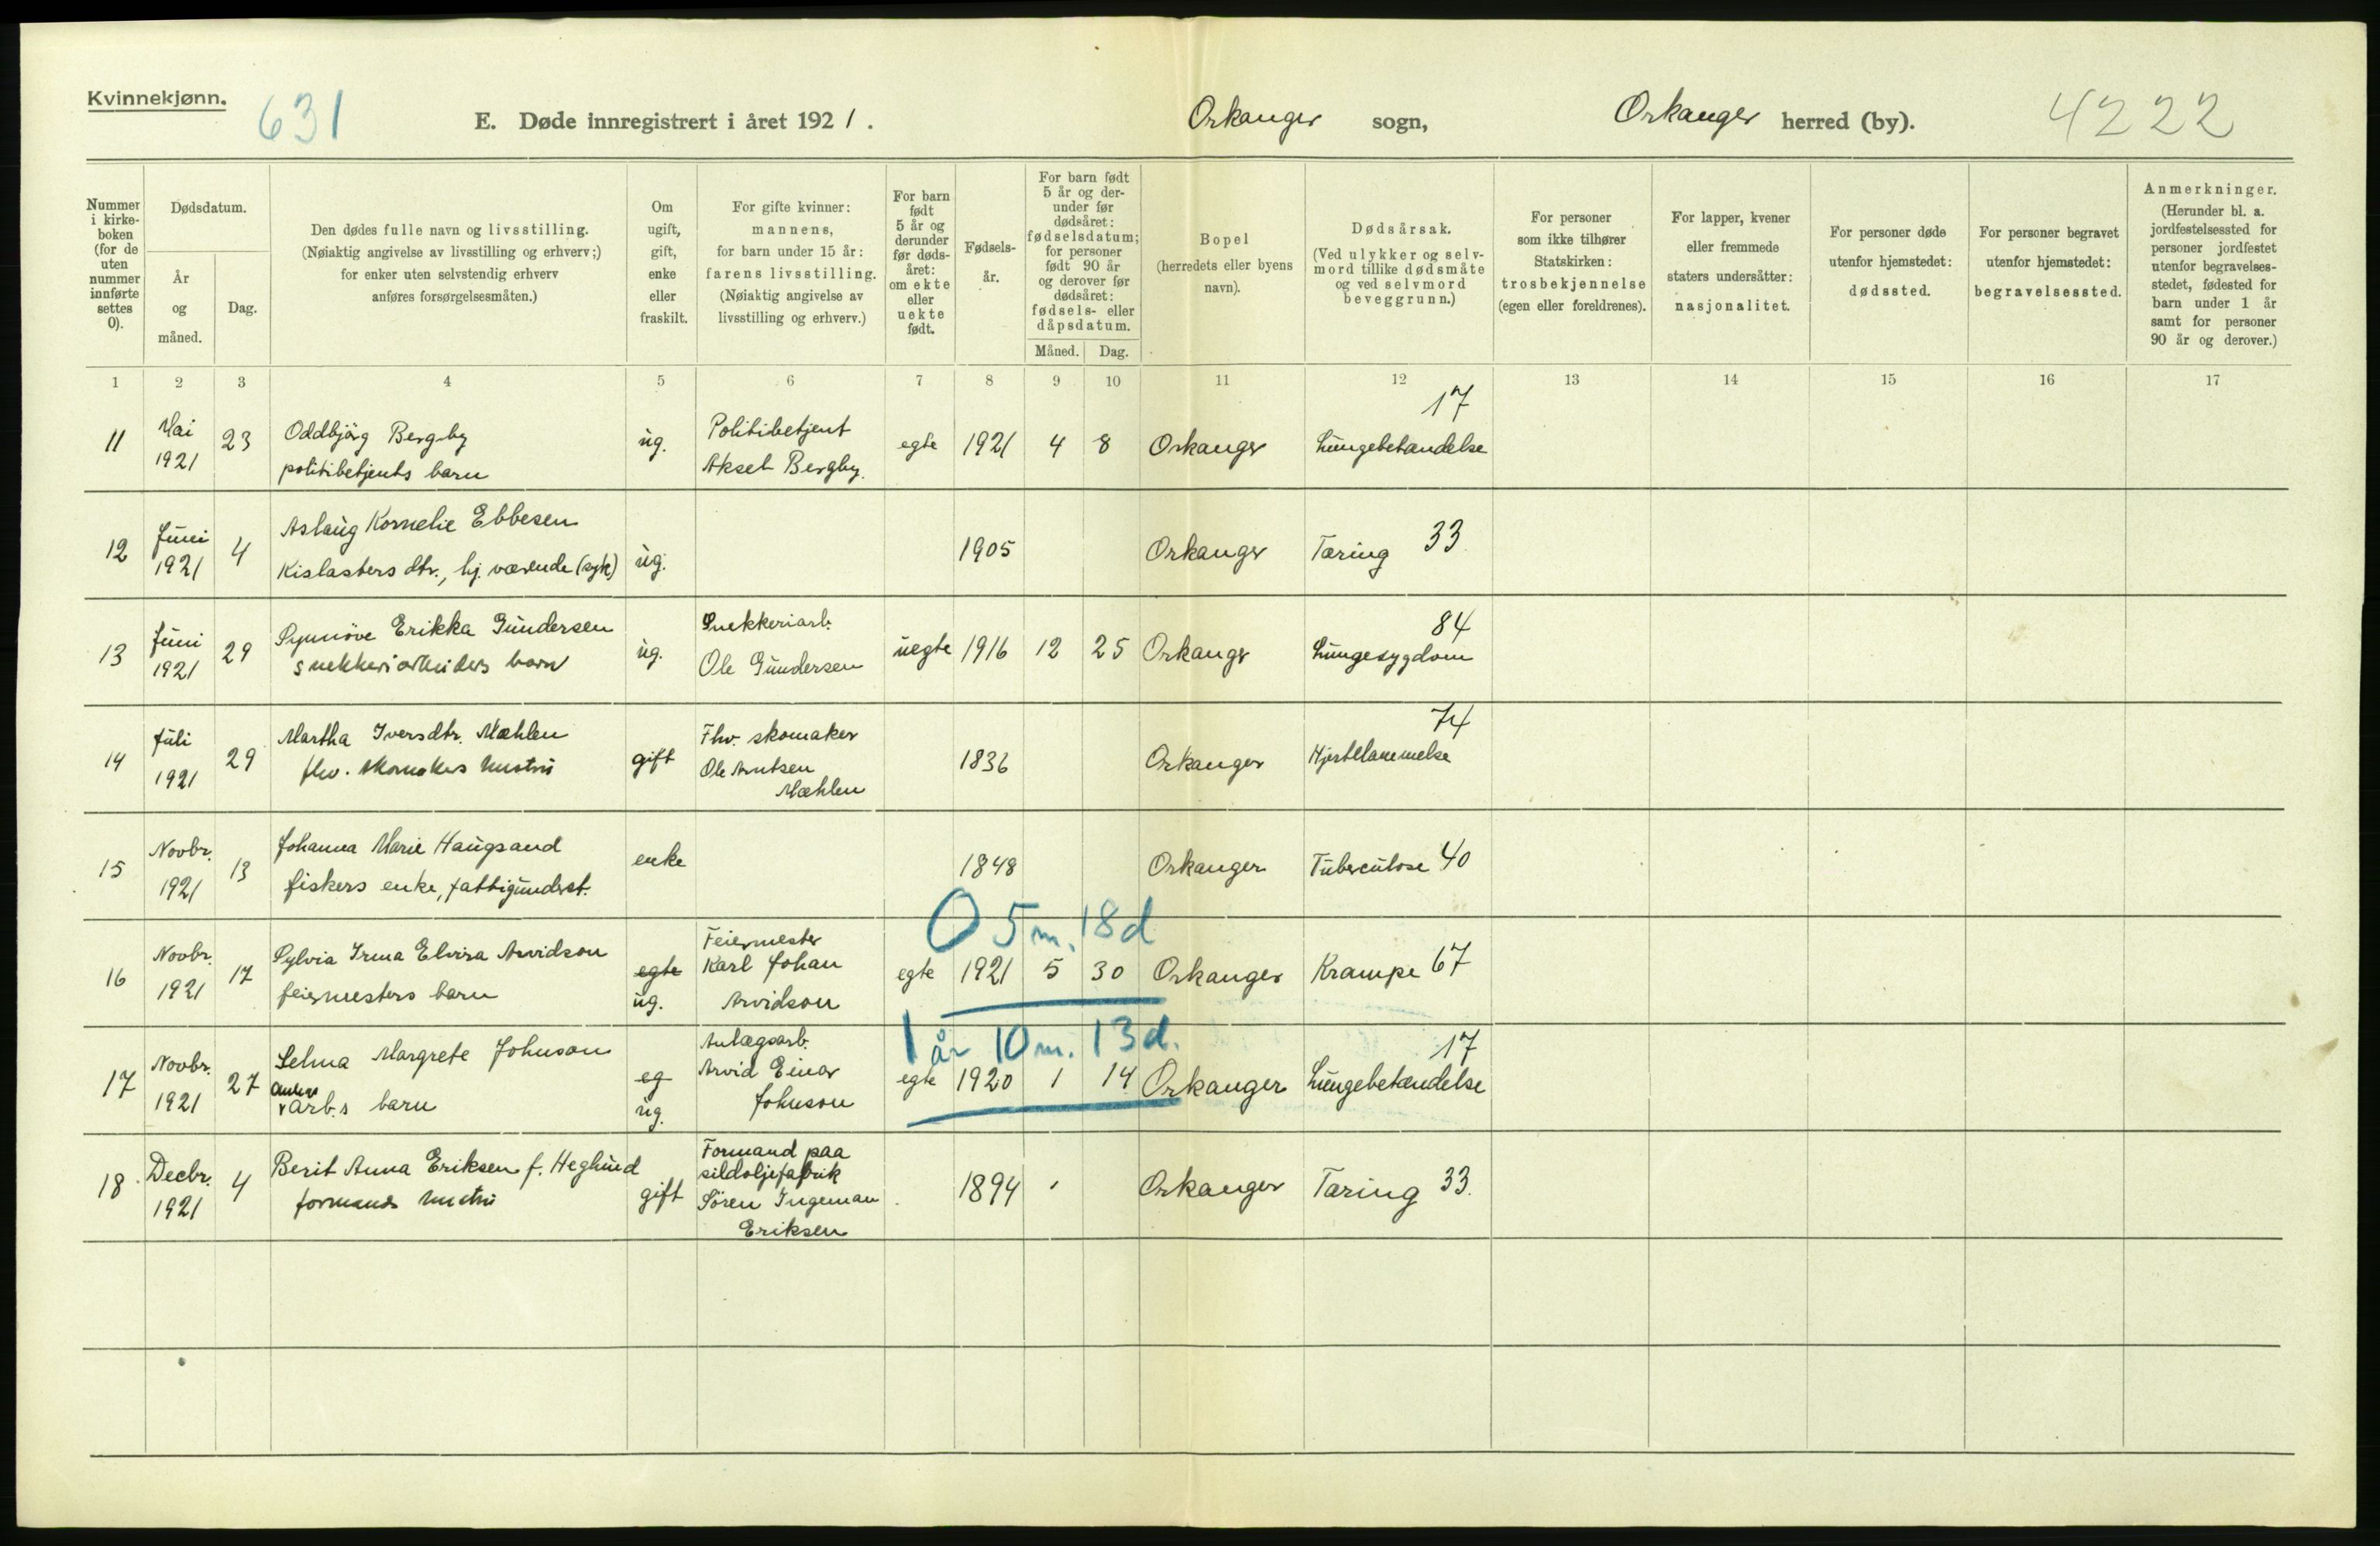 Kvinnekjønn.
631
E. Døde innregistrert i året 1921.
Orkanger sogn,
Orkanger herred (by).
4222
Nummer i kirke-boken (for de uten nummer innførte settes 0).
Dødsdatum.
År og måned.
Dag.
Den dødes fulle navn og livsstilling.
(Nøiaktig angivelse av livsstilling og erhverv;)
for enker uten selvstendig erhverv
anføres forsørgelsesmåten.)
Om ugift, gift, enke eller fraskilt.
For gifte kvinner:
mannens,
for barn under 15 år:
farens livsstilling.
(Nøiaktig angivelse av
livsstilling og erhverv.)
For barn født 5 år og derunder før døds-året: om ekte eller uekte født.
Fødsels-år.
For barn født 5 år og der-under før dødsåret: fødselsdatum; for personer født 90 år og derover før dødsåret: fødsels- eller dåpsdatum.
Måned. Dag.
Bopel
(herredets eller byens
navn).
Dødsårsak.
(Ved ulykker og selv-
mord tillike dødsmåte
og ved selvmord
beveggrunn.)
For personer
som ikke tilhører
Statskirken:
trosbekjennelse
(egen eller foreldrenes).
For lapper, kvener
eller fremmede
staters undersåtter:
nasjonalitet.
For personer døde
utenfor hjemstedet:
dødssted.
For personer begravet
utenfor hjemstedet:
begravelsessted.
Anmerkninger.
(Herunder bl. a.
jordfestelsessted for
personer jordfestet
utenfor begravelses-
stedet, fødested for
barn under 1 år
samt for personer
90 år og derover.)
1 2 3 4 5 6 7 8 9 10 11 12 13 14 15 16 17
11 Mai 1921 23 Oddbjörg Bergby politibetjents barn ug. Politibetjent Aksel Bergby. egte 1921 4 8 Orkanger Lungebetændelse 17
12 Juni 1921 4 Aslaug Kornelie Ebbesen Kislasters dtr., hj. værende (syk) ug. 1905 Orkanger Tæring 33
13 Juni 1921 29 Synnöve Erikka Gundersen snekkeriarbeiders barn ug. Snekkeriarb. Ole Gundersen uegte 1916 12 25 Orkanger Lungesygdom 84
14 Juli 1921 29 Martha Iversdtr. Mæhlen fhv. skomakers hustru gift Fhv. skomaker Ole Arntsen Mæhlen 1836 Orkanger Hjertelammelse 74
15 Novbr. 1921 13 Johanna Marie Haugsand fiskers enke, fattigunderst. enke 1848 Orkanger Tuberculose 40
0 5 m. 18 d
16 Novbr. 1921 17 Sylvia Irma Elvira Arvidson feiermesters barn egte ug. Feiermester Karl Johan Arvidson egte 1921 5 30 Orkanger Krampe 67
1 år 10 m. 13 d.
17 Novbr. 1921 27 Selma Margrete Johnson arb.s barn eg ug. Anlægsarb. Arvid Einar Johnson egte 1920 1 14 Orkanger Lungebetændelse 17
18 Decbr. 1921 4 Berit Anna Eriksen f. Heglund formands hustru gift Formand paa sildoljefabrik Sören Ingeman Eriksen 1894 Orkanger Tæring 33.